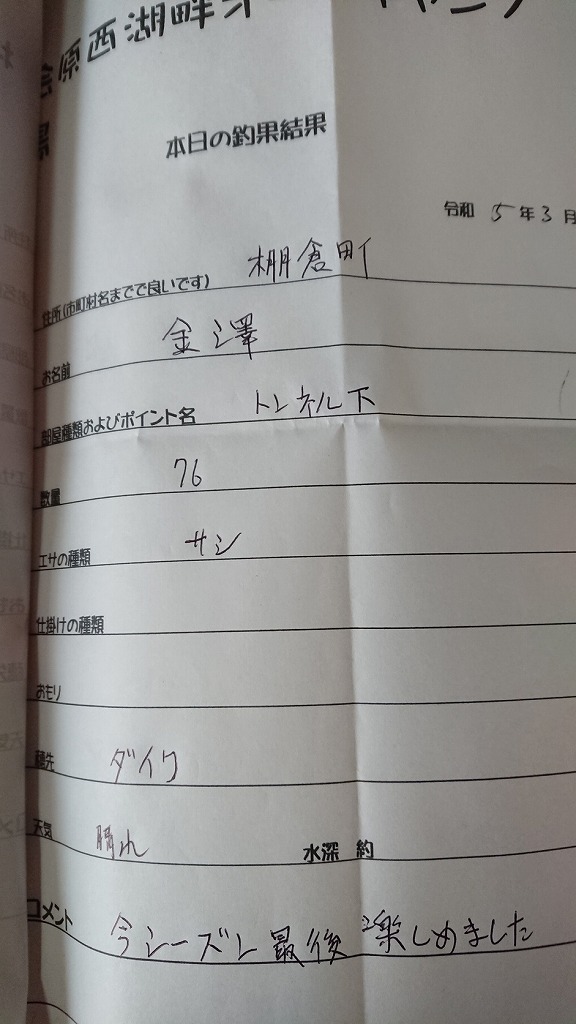 原西湖畔オ
本日の釣果結果
令和 5年3月
住所(市町村名までで良いです) 棚倉町
お名前 金澤
部屋種類およびポイント名 トンネル下
数量 76
エサの種類 サシ
仕掛けの種類
おもり
穂先 ダイワ
天気 晴れ 水深 約
コメント 今シーズン最後 楽しめました